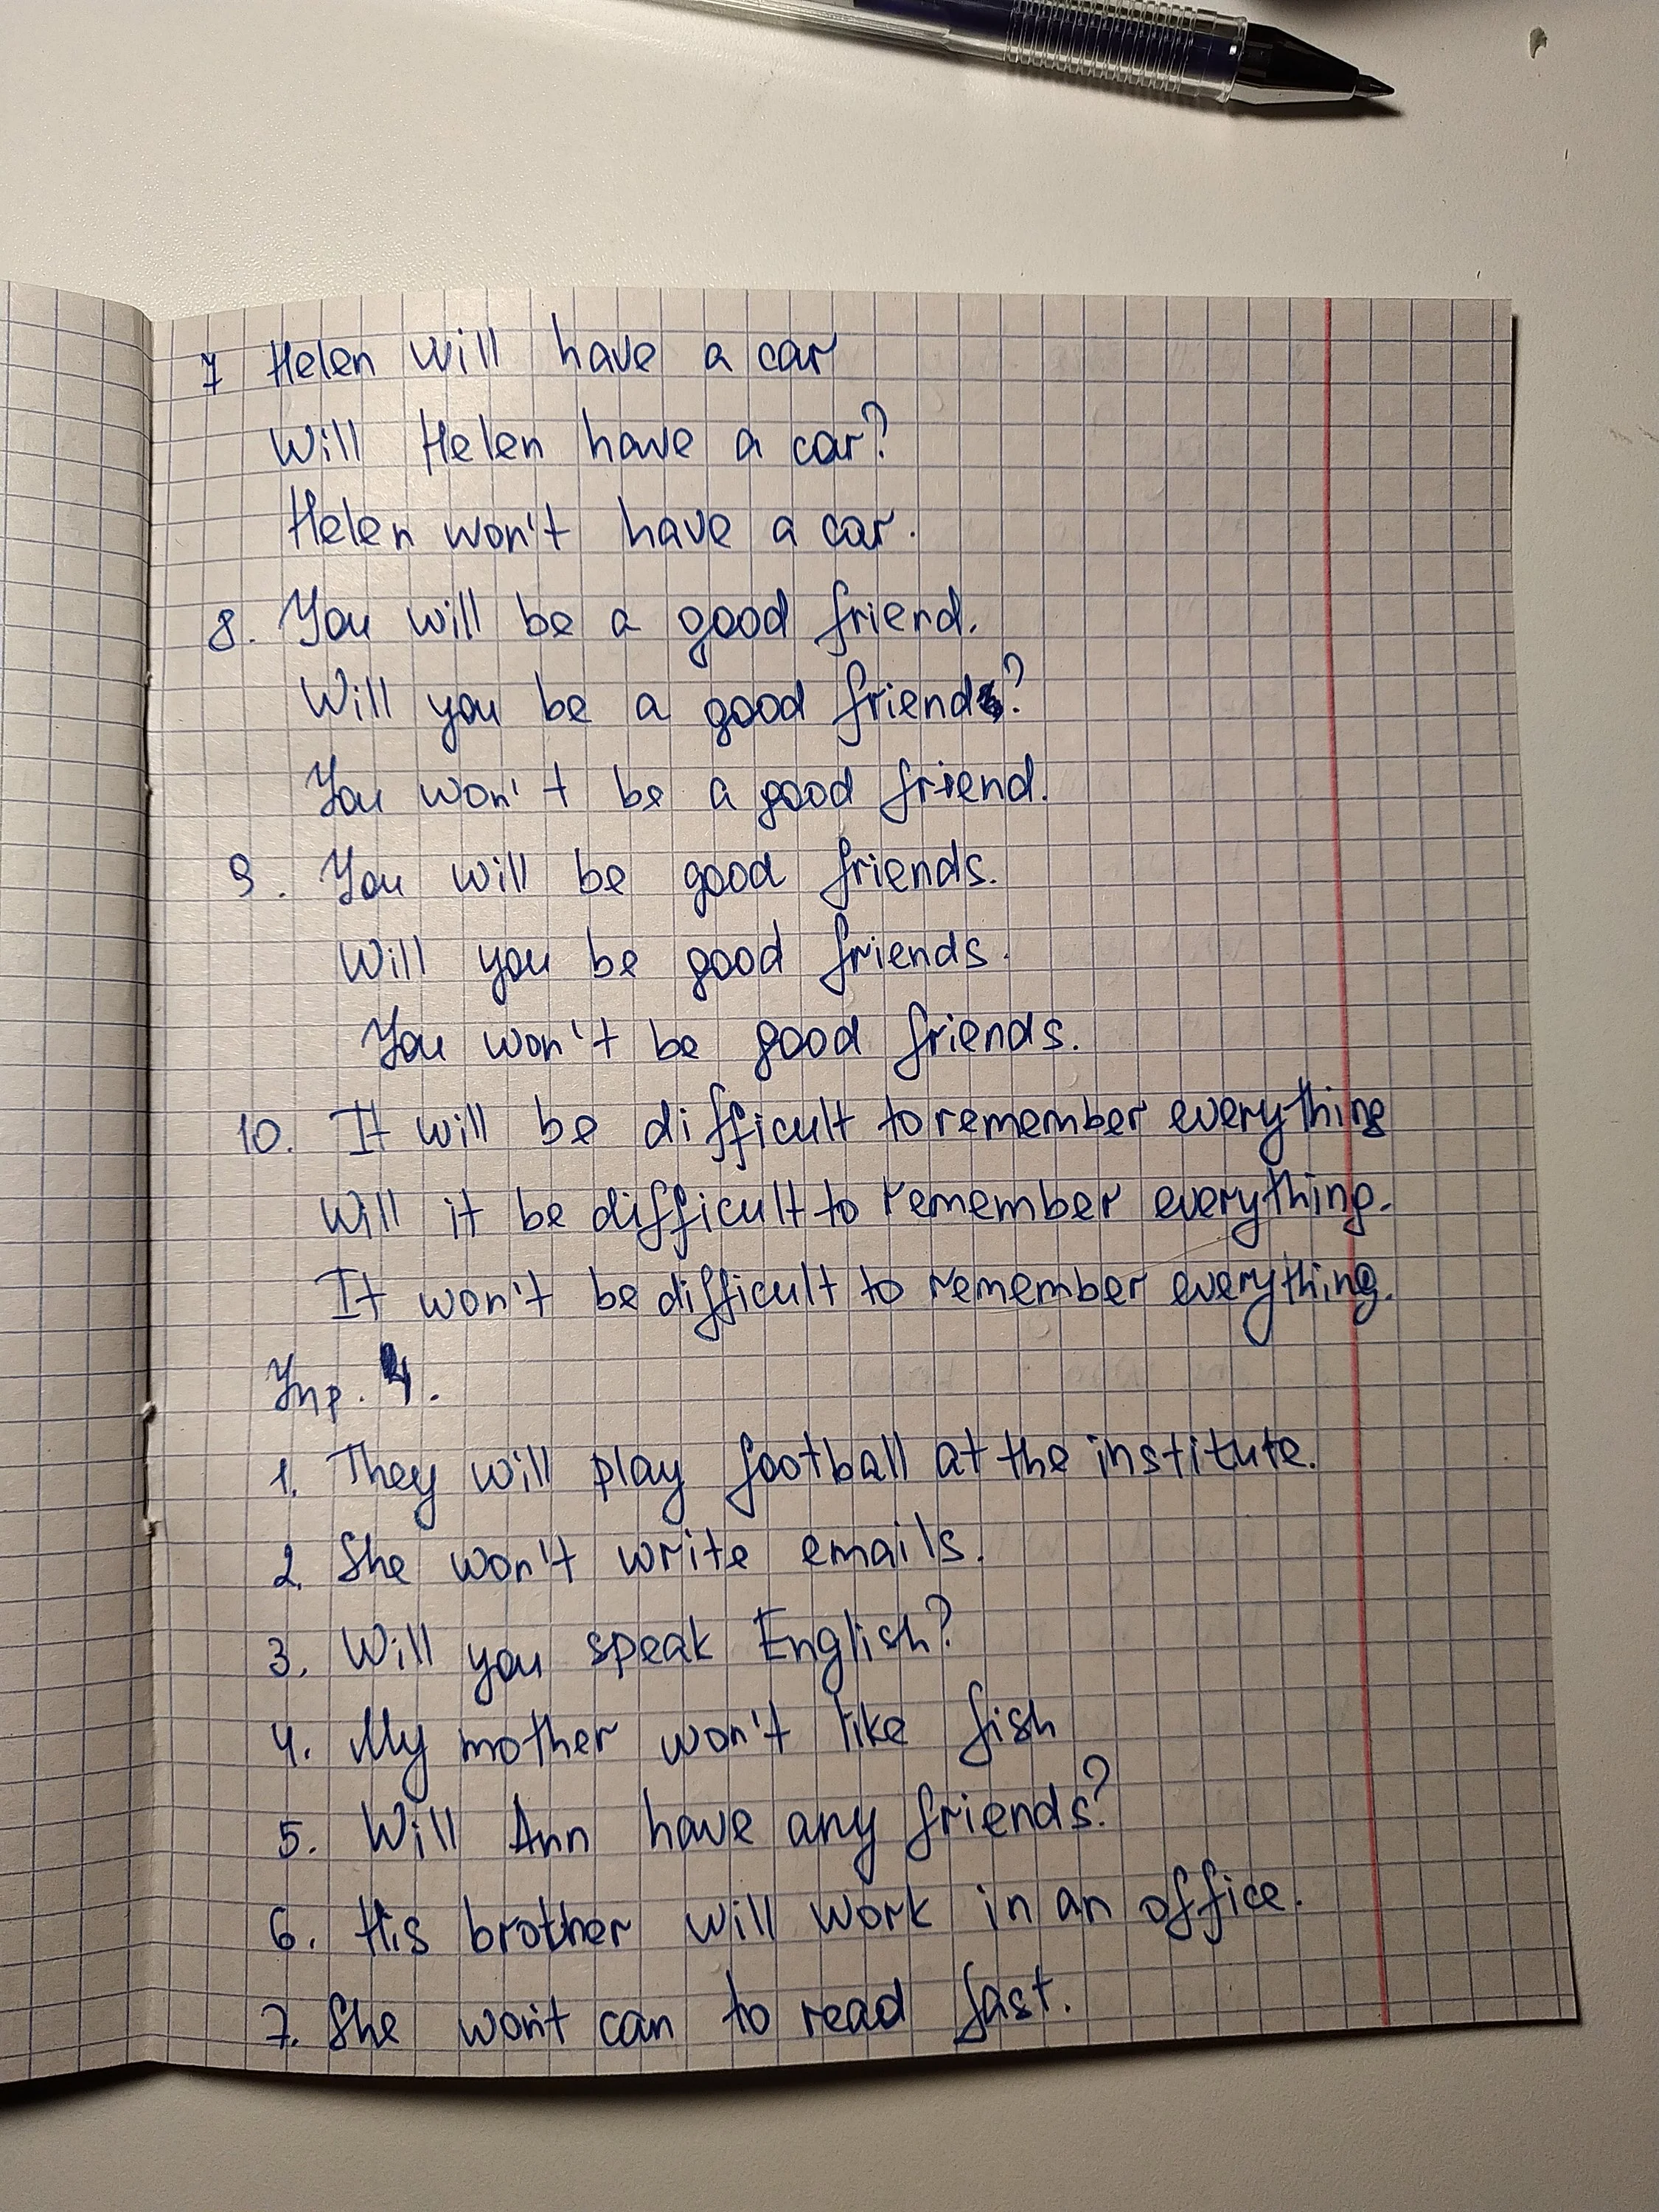 7 Helen will have a car
Will Helen have a car?
Helen won't have a car.
8. You will be a good friend.
Will you be a good friend?
You won't be a good friend.
9. You will be good friends.
Will you be good friends.
You won't be good friends.
10. It will be difficult to remember everything
Will it be difficult to remember everything.
It won't be difficult to remember everything.
Упр. 4.
1. They will play football at the institute.
2. She won't write emails.
3. Will you speak English?
4. My mother won't like fish
5. Will Ann have any friends?
6. His brother will work in an office.
7. She won't can to read fast.